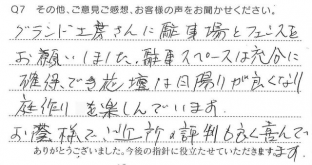 Q7 その他、ご意見ご感想、お客様の声をお聞かせください。
グランド工房さんに駐車場とフェンスを
お願いしました。駐車スペースは充分に
確保でき花壇は日陽りが良くなり
庭作りを楽しんでいます。
お蔭様で、ご近所の評判も良く喜んで
ありがとうございました。今後の指針に役立たせていただきます。
ます。